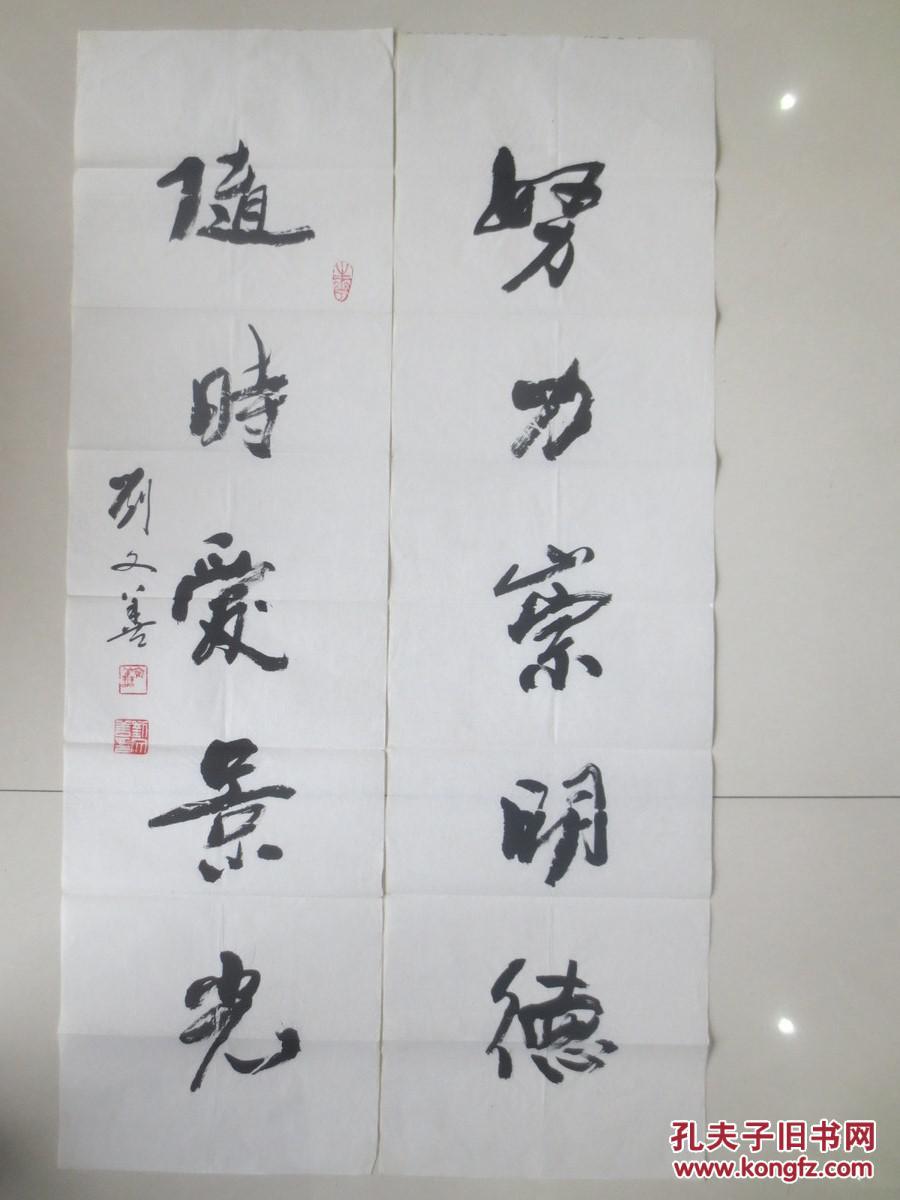 努力崇明德
隨時愛景光
劉文善
孔夫子旧书网
www.kongfz.com